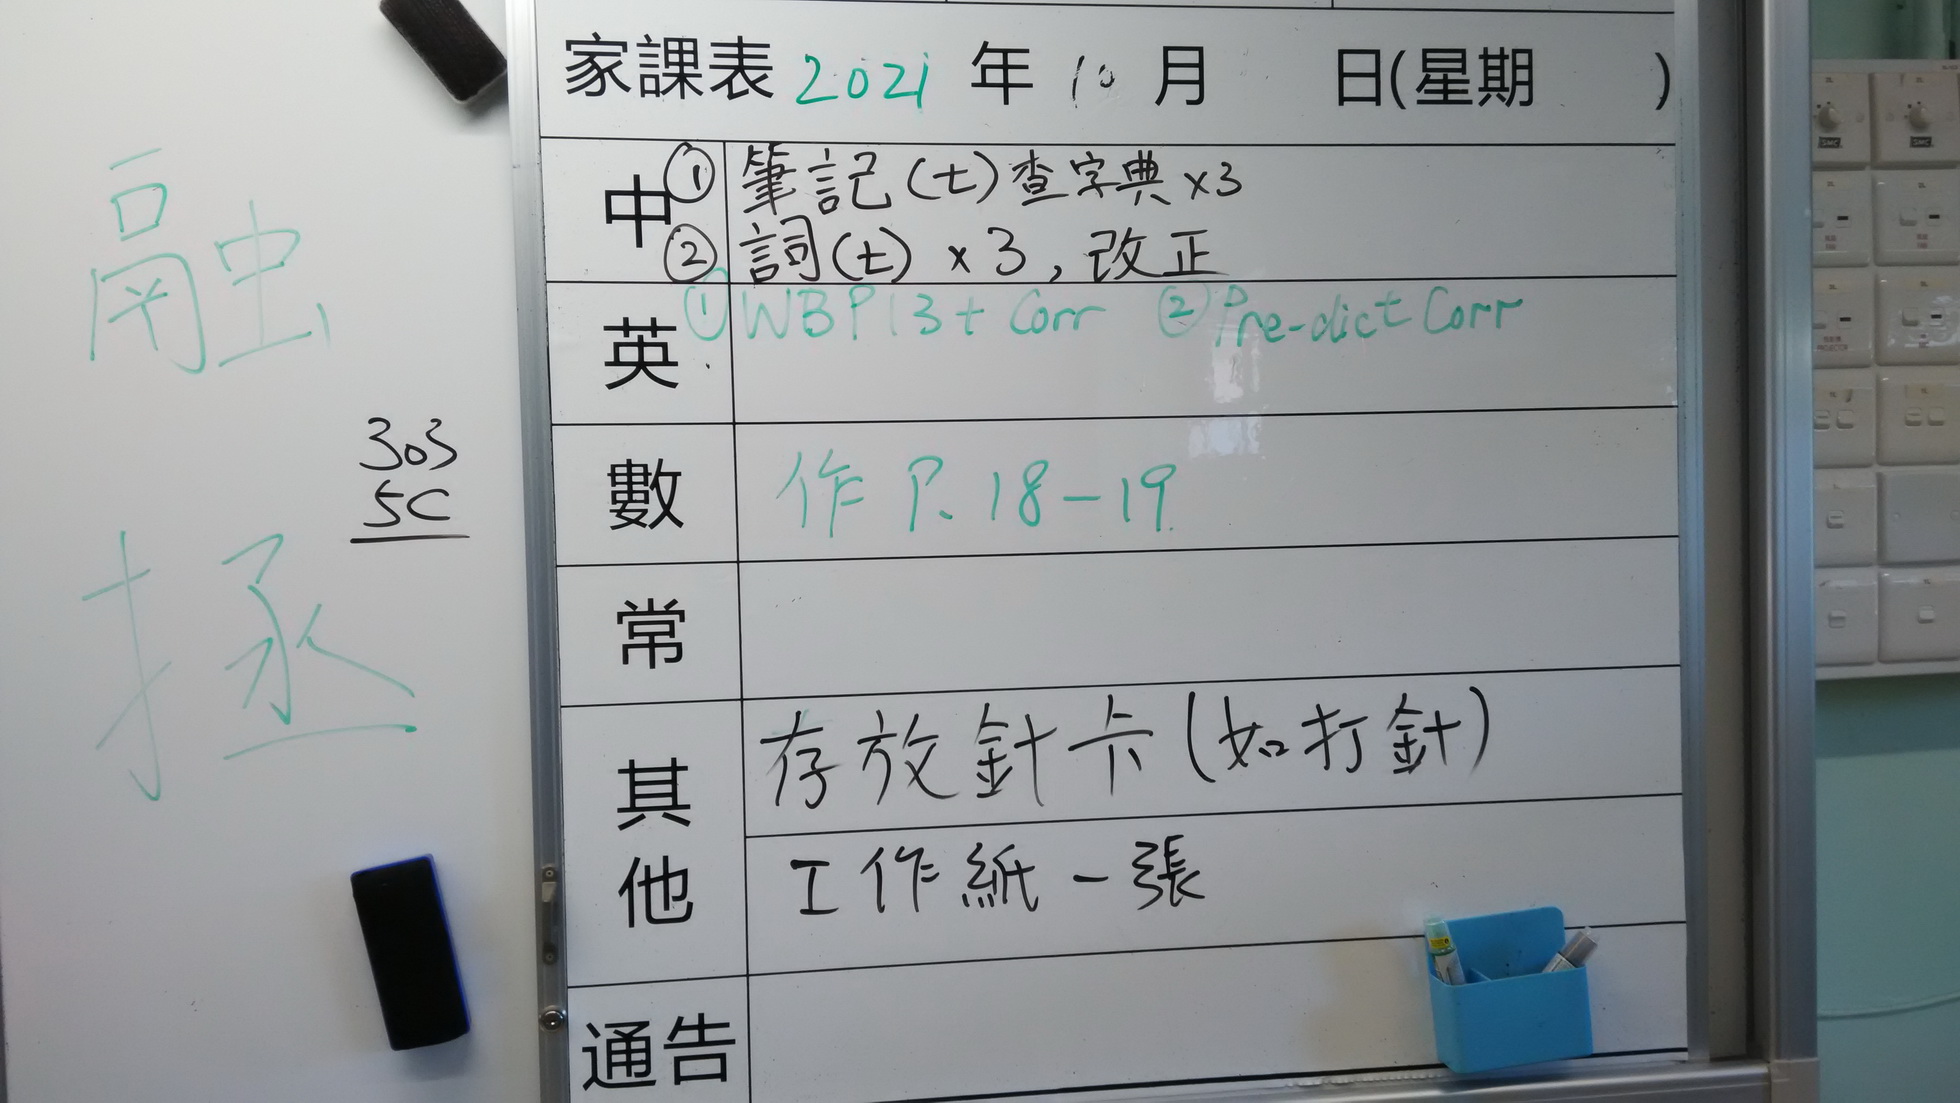 家課表 2021 年 10 月 日(星期 )
中 ① 筆記(七)查字典×3
② 詞(七)×3,改正
英 ① WB P13+Corr ② Pre-dict Corr
數 作 P.18-19
常
其他 存放針卡(如打針)
工作紙一張
通告
融
303
5C
拯